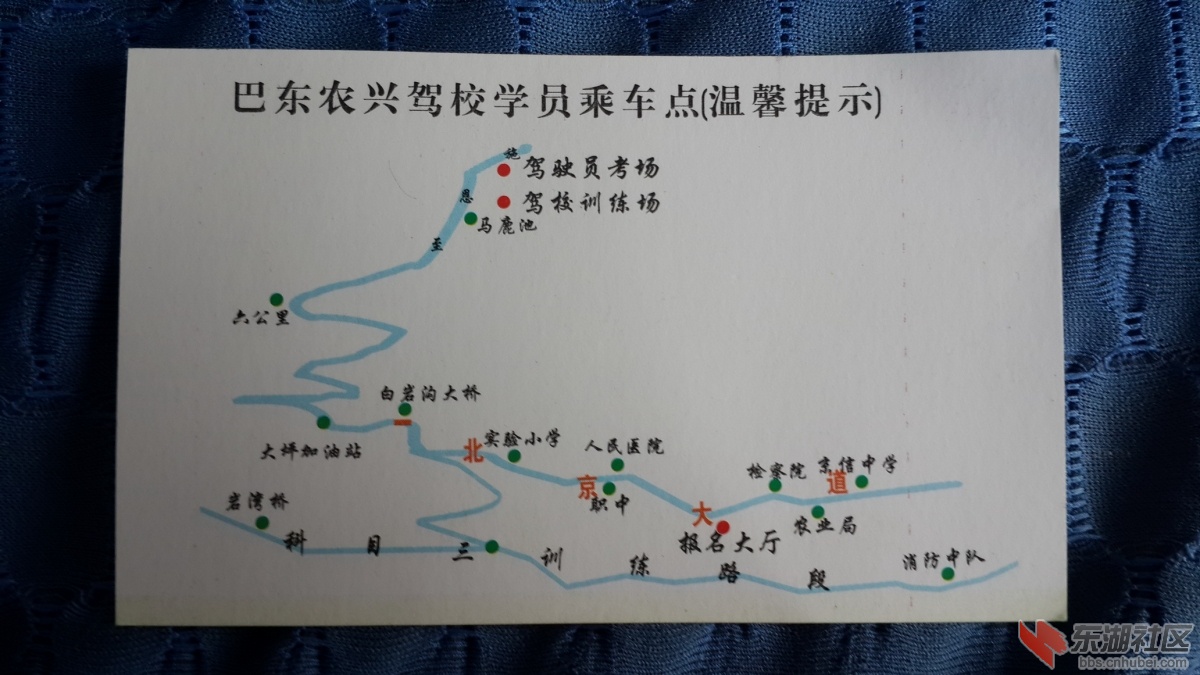 巴东农兴驾校学员乘车点(温馨提示)
施
驾驶员考场
恩
驾校训练场
马鹿池
至
六公里
白岩沟大桥
大坪加油站
北京大道
实验小学
人民医院
检察院
京信中学
职中
农业局
报名大厅
岩湾桥
科目三训练路段
消防中队
东湖社区
bbs.cnhubei.com